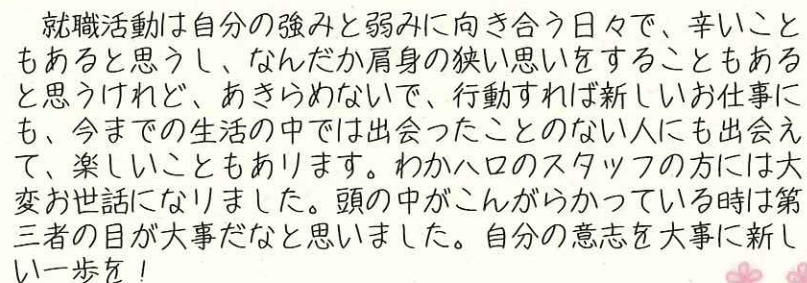 就職活動は自分の強みと弱みに向き合う日々で、辛いこと
もあると思うし、なんだか肩身の狭い思いをすることもある
と思うけれど、あきらめないで、行動すれば新しいお仕事に
も、今までの生活の中では出会ったことのない人にも出会え
て、楽しいこともあります。わかハロのスタッフの方には大
変お世話になりました。頭の中がこんがらかっている時は第
三者の目が大事だなと思いました。自分の意志を大事に新し
い一歩を！